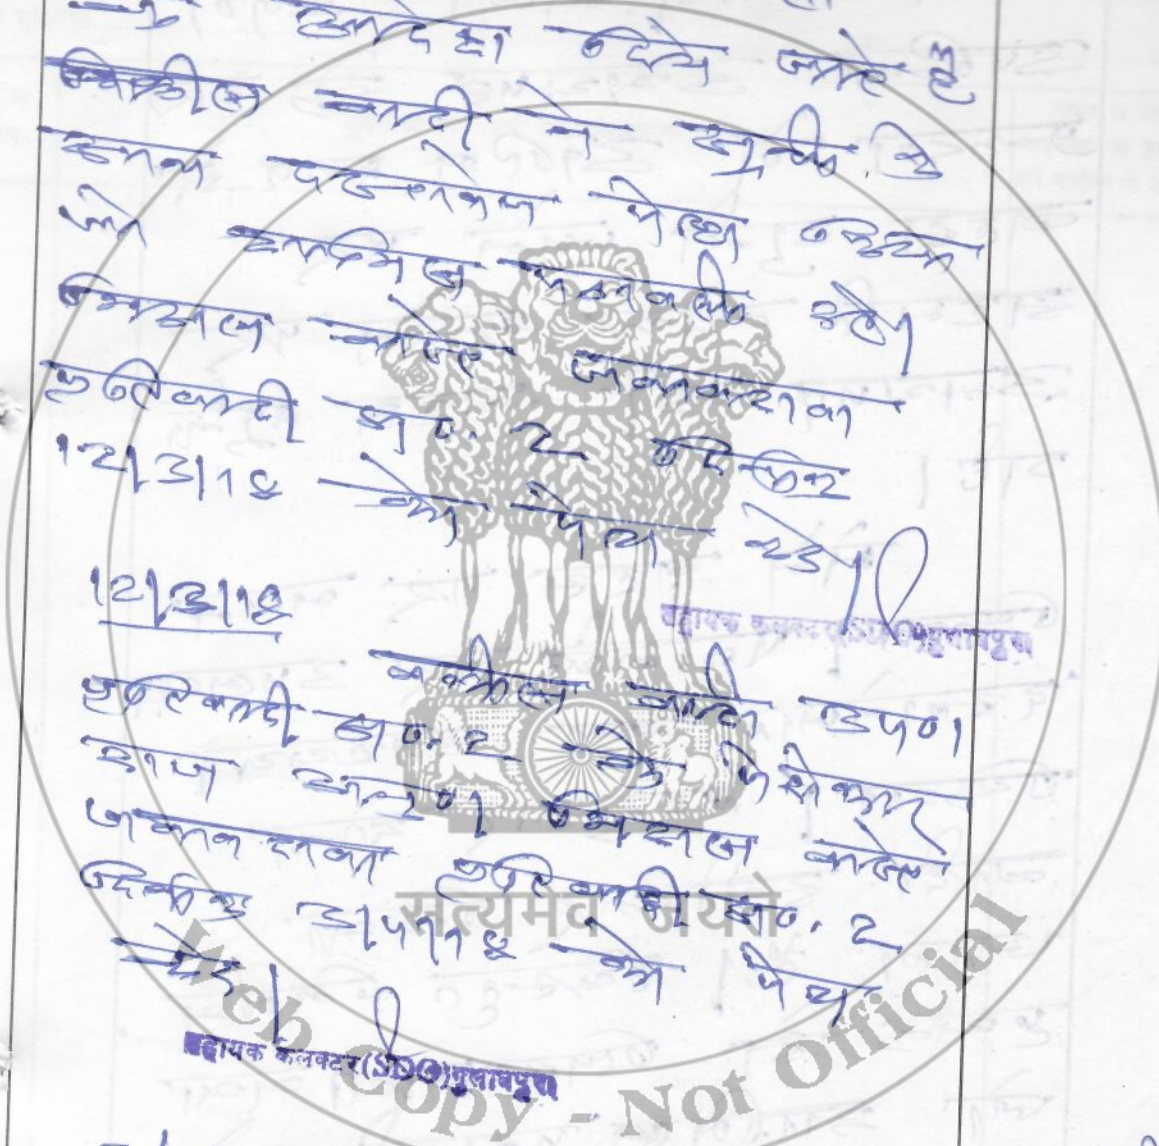 आदेश दिये जाते है
वकील वादी ने सूची के
साथ दस्तावेज पेश किया
जो शामिल पत्रावली रहे।
मिसल वास्ते जवाबदावा
प्रतिवादी सं. 2 दिनांक
12/3/18 को पेश हो।
सहायक कलक्टर (SDO) गुलाबपुरा
12/3/18
वकील वादी उप०।
प्रतिवादी सं. 2 के पेरोकार
मिसल वास्ते
जवाब दावा प्रतिवादी सं. 2
दिनांक को पेश
हो।
सहायक कलक्टर (SDO) गुलाबपुरा
सत्यमेव जयते
Web Copy - Not Official